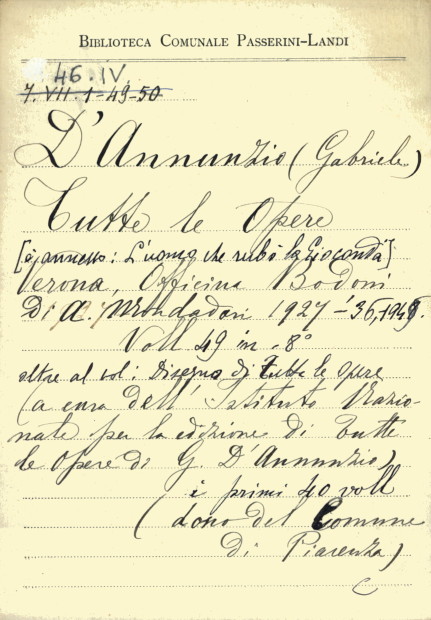 BIBLIOTECA COMUNALE PASSERINI-LANDI
46.IV.
7.VII.1-49-50
D'Annunzio (Gabriele)
Tutte le Opere
[è annesso: L'uomo che rubò la Gioconda]
Verona, Officina Bodoni
di A. Mondadori 1927-36, 1948.
Voll 49 in-8°
oltre al vol: Disegno di Tutte le Opere
(a cura dell'Istituto Nazio-
nale per la edizione di tutte
le Opere di G. D'Annunzio)
i primi 40 voll
(dono del Comune
di Piacenza)